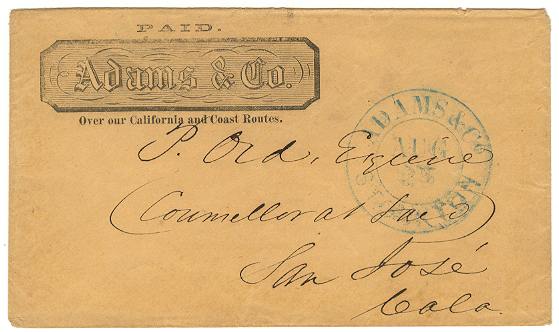 PAID.
Adams & Co.
Over our California and Coast Routes.
ADAMS & Co
AUG
25
STOCKTON
P. Ord, Esquire
Counsellor at Law
San José
Cala.